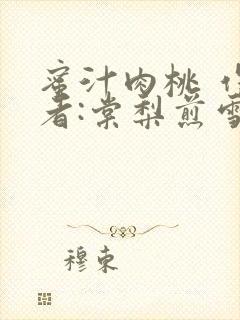 蜜汁肉桃 作
者:棠梨煎雪
穆束